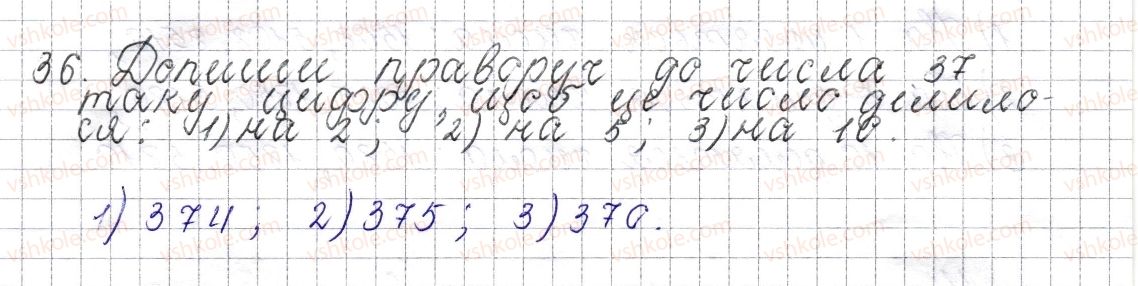 36. Допиши праворуч до числа 37
таку цифру, щоб це число ділило-
ся: 1) на 2; 2) на 5; 3) на 10.
1) 374; 2) 375; 3) 370.